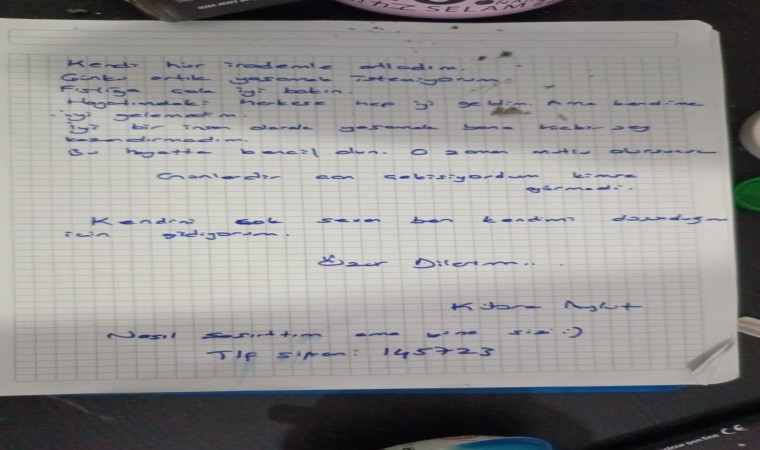 Kendi hür irademle atladım.
Çünkü artık yaşamak istemiyorum.
Fıstığa çok iyi bakın.
Hayatımdaki herkese hep iyi geldim. Ama kendime
iyi gelemedim.
İyi bir insan olarak yaşamak bana hiçbir şey
kazandırmadı.
Bu hayatta bencil olun. O zaman mutlu olursunuz
Günlerdir can çekişiyordum kimse
görmedi.
Kendini çok seven ben kendimi düşündüğüm
için gidiyorum.
Özür Dilerim..
Kübra
Nasıl şaşırttım ama yine sizi :)
Tlf şifrem: 145723